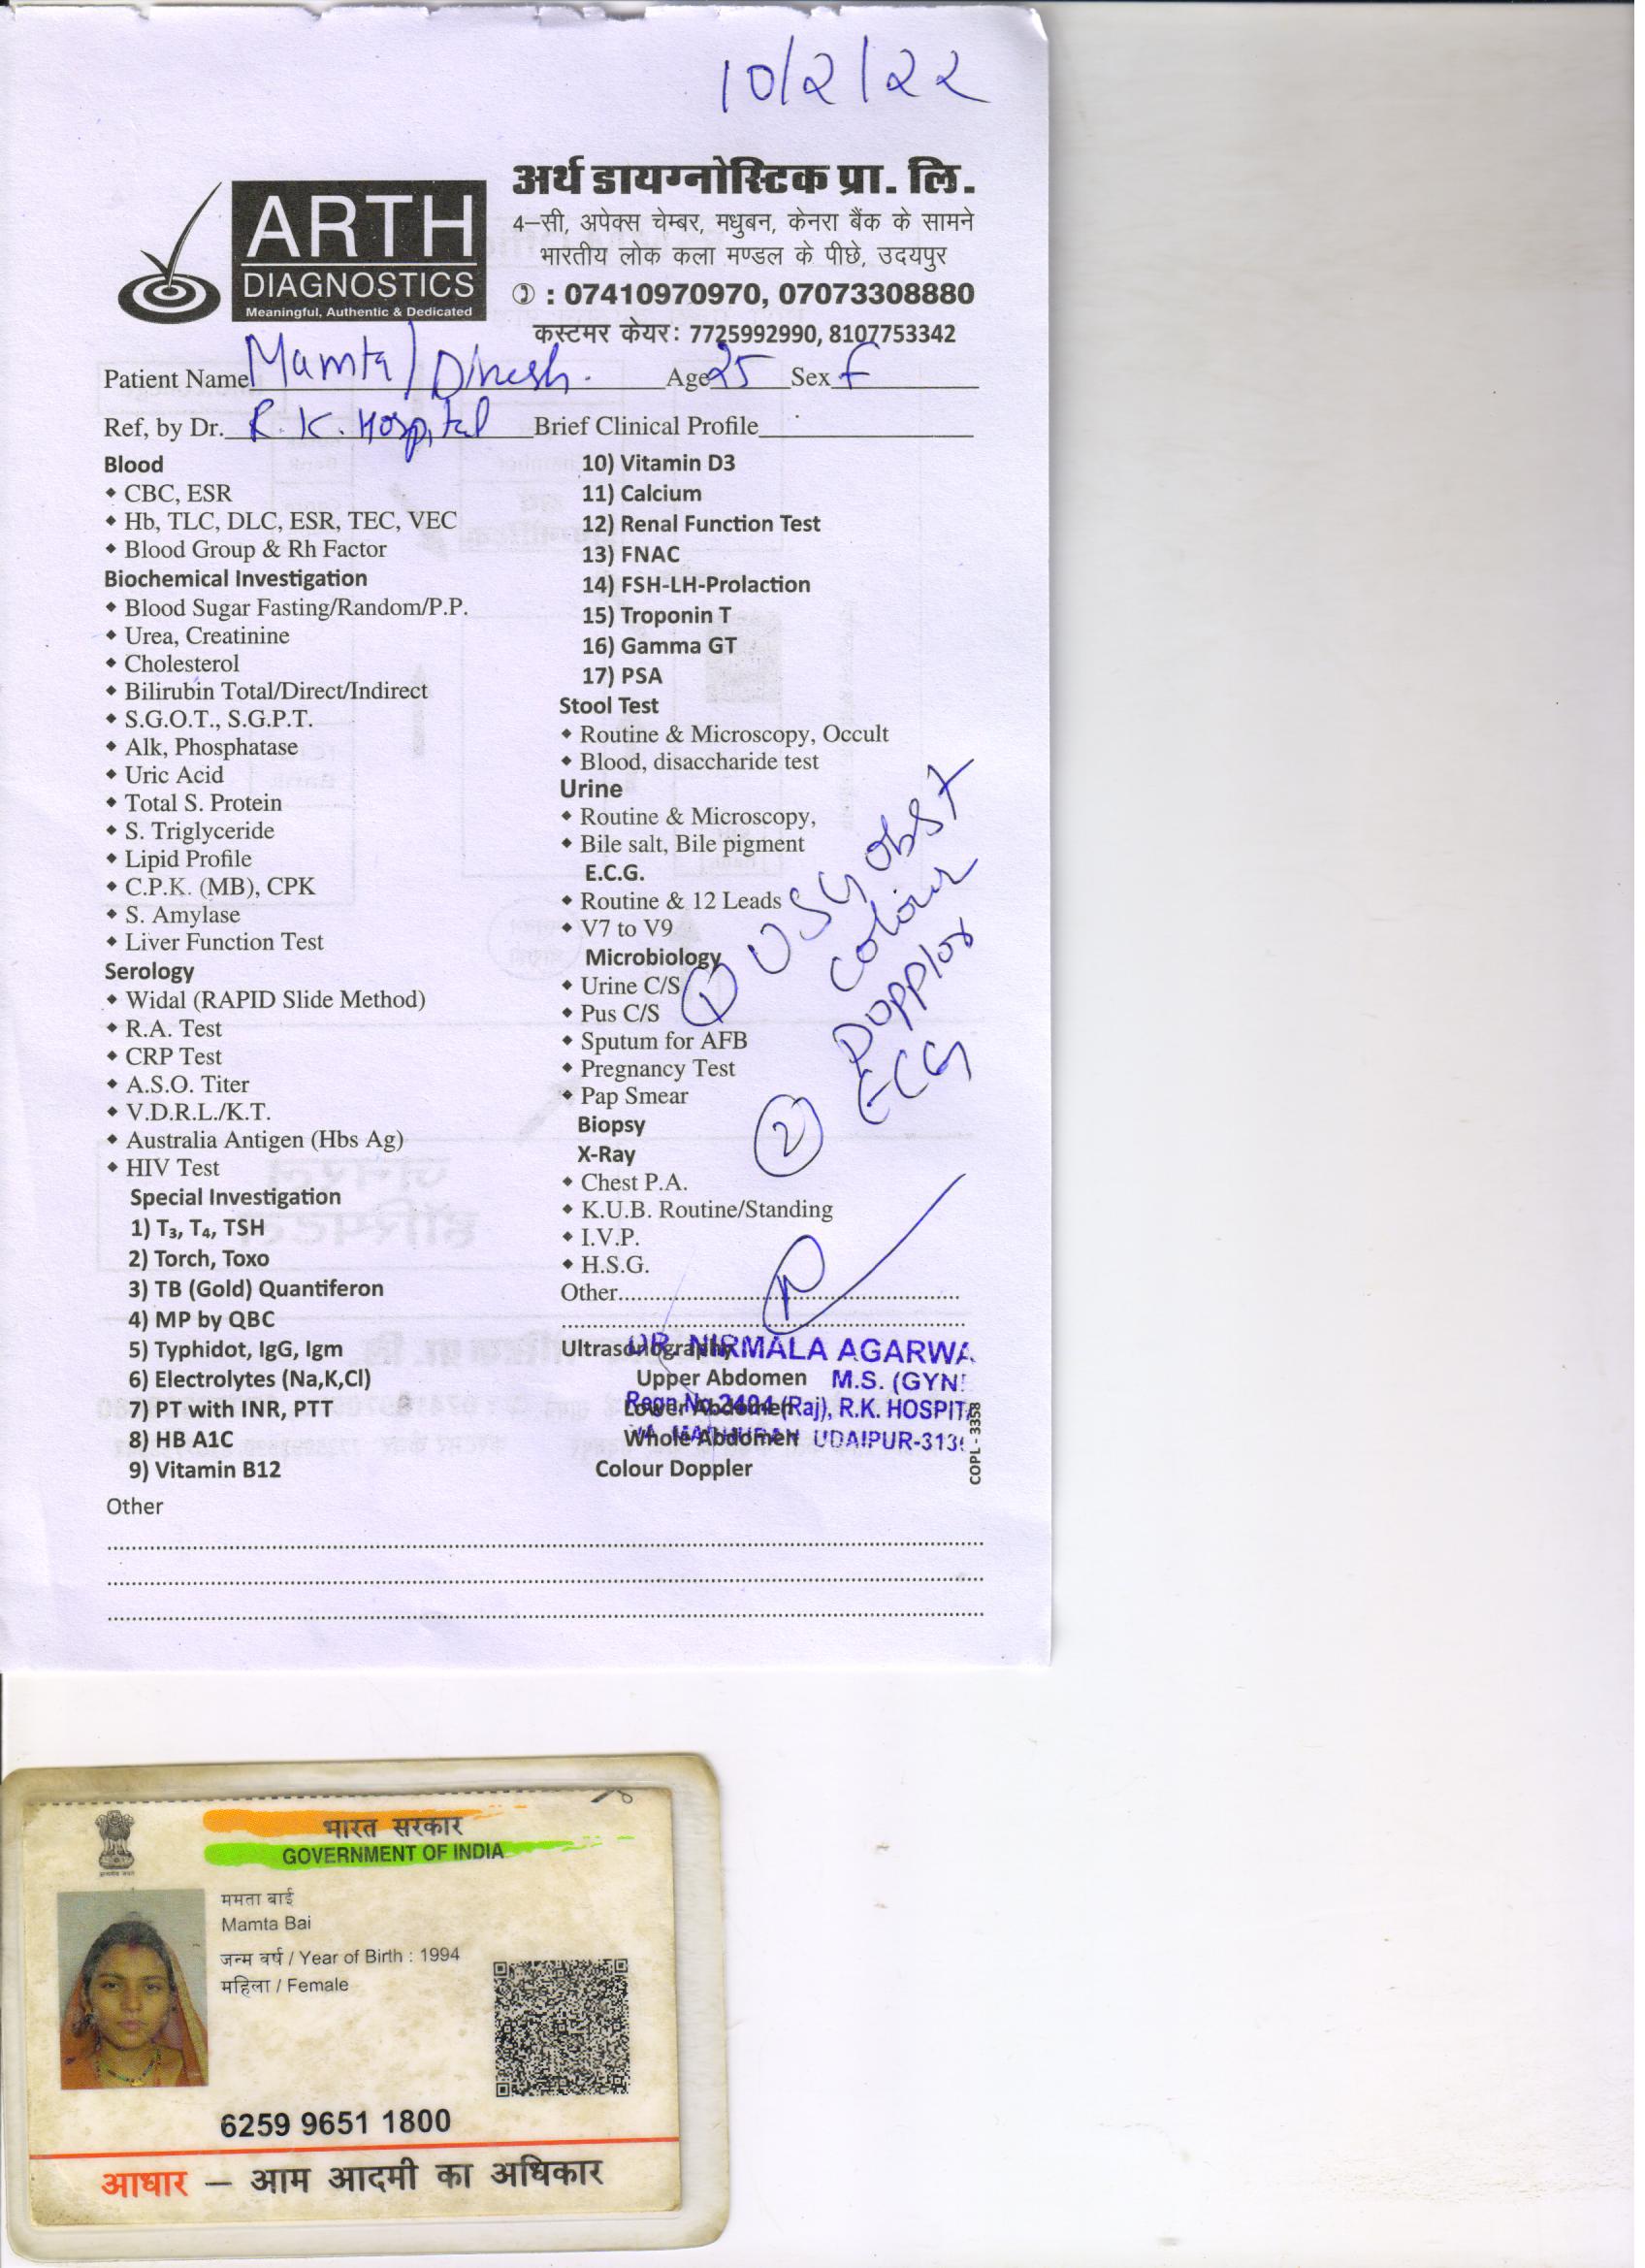 10/2/22
ARTH
DIAGNOSTICS
Meaningful, Authentic & Dedicated
अर्थ डायग्नोस्टिक प्रा. लि.
4–सी, अपेक्स चेम्बर, मधुबन, केनरा बैंक के सामने
भारतीय लोक कला मण्डल के पीछे, उदयपुर
: 07410970970, 07073308880
कस्टमर केयर: 7725992990, 8107753342
Patient Name Mamta/Dinesh. Age 25 Sex F
Ref, by Dr. R.K. Hospital Brief Clinical Profile
Blood
CBC, ESR
Hb, TLC, DLC, ESR, TEC, VEC
Blood Group & Rh Factor
Biochemical Investigation
Blood Sugar Fasting/Random/P.P.
Urea, Creatinine
Cholesterol
Bilirubin Total/Direct/Indirect
S.G.O.T., S.G.P.T.
Alk, Phosphatase
Uric Acid
Total S. Protein
S. Triglyceride
Lipid Profile
C.P.K. (MB), CPK
S. Amylase
Liver Function Test
Serology
Widal (RAPID Slide Method)
R.A. Test
CRP Test
A.S.O. Titer
V.D.R.L./K.T.
Australia Antigen (Hbs Ag)
HIV Test
Special Investigation
1) T₃, T₄, TSH
2) Torch, Toxo
3) TB (Gold) Quantiferon
4) MP by QBC
5) Typhidot, IgG, Igm
6) Electrolytes (Na,K,Cl)
7) PT with INR, PTT
8) HB A1C
9) Vitamin B12
10) Vitamin D3
11) Calcium
12) Renal Function Test
13) FNAC
14) FSH-LH-Prolaction
15) Troponin T
16) Gamma GT
17) PSA
Stool Test
Routine & Microscopy, Occult
Blood, disaccharide test
Urine
Routine & Microscopy,
Bile salt, Bile pigment
E.C.G.
Routine & 12 Leads
V7 to V9
Microbiology
Urine C/S
Pus C/S
Sputum for AFB
Pregnancy Test
Pap Smear
Biopsy
X-Ray
Chest P.A.
K.U.B. Routine/Standing
I.V.P.
H.S.G.
Other
Ultrasonography
Upper Abdomen
Lower Abdomen
Whole Abdomen
Colour Doppler
① USG Obst
Colour
Dopplor
② ECG
DR. NIRMALA AGARWA
M.S. (GYN
Regn.No.2484 (Raj), R.K. HOSPIT
UDAIPUR-313
COPL - 3358
Other
भारत सरकार
GOVERNMENT OF INDIA
ममता बाई
Mamta Bai
जन्म वर्ष / Year of Birth : 1994
महिला / Female
6259 9651 1800
आधार – आम आदमी का अधिकार